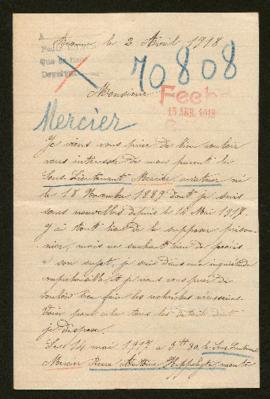 Roanne, le 2 Avril 1918
70808
Monsieur
15 AVR. 1918
Mercier
Je viens vous prier de bien vouloir
vous intéresser de mon parent le
Sous-Lieutenant Mercier, aviateur né
le 18 Novembre 1889 dont je suis
sans nouvelles depuis le 14 Mai 1917.
J'ai tout lieu de le supposer prison-
nier, mais ne sachant rien de précis
à son sujet, je suis dans une inquiétude
et je vous prie de
vouloir bien faire les recherches nécessaires
tous les détails dont
je dispose.
Le 14 mai 1917 à 5h 30 le Sous-Lieutenant
Mercier Pierre Antoine Hippolyte